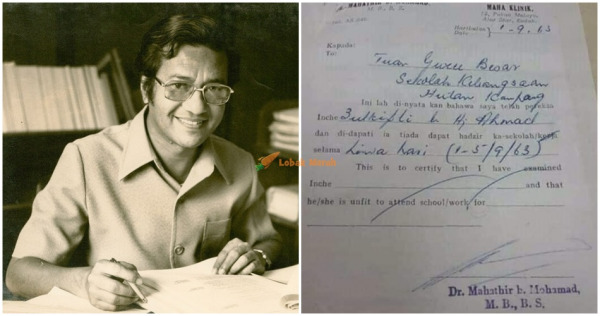 M.B., B.S.
MAHA KLINIK.
Alor Star, Kedah.
Haribulan
Date 1-9-63
Kepada:
To:
Tuan Guru Besar
Sekolah Kebangsaan
Hutan Kampang
Ini lah di-nyata kan bahawa saya telah pereksa
Inche Zulkifli b Hj Ahmad
dan di-dapati ia tiada dapat hadzir ka-sekolah/kerja
selama Lima hari (1-5/9/63)
This is to certify that I have examined
Inche and that
he/she is unfit to attend school/work for
Dr. Mahathir b. Mohamad,
M. B., B. S.